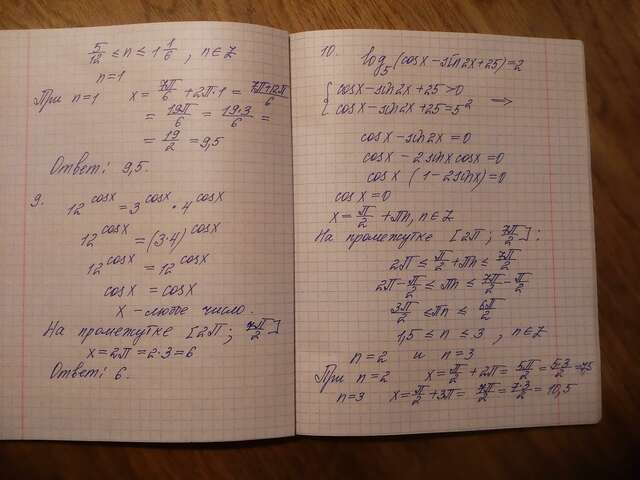 5/12 ≤ n ≤ 1 1/6 , n ∈ Z
n=1
При n=1 x = 7π/6 + 2π·1 = 7π+12π/6
= 19π/6 = 19·3/6 =
= 19/2 = 9,5
Ответ: 9,5.
9. 12^cosx = 3^cosx · 4^cosx
12^cosx = (3·4)^cosx
12^cosx = 12^cosx
cosx = cosx
x – любое число.
На промежутке [2π ; 7π/2]
x = 2π = 2·3 = 6
Ответ: 6.
10. log₅(cosx – sin2x + 25) = 2
{ cosx – sin2x + 25 > 0
cosx – sin2x + 25 = 5² ⟶
cosx – sin2x = 0
cosx – 2sinx cosx = 0
cosx (1 – 2sinx) = 0
cosx = 0
x = π/2 + πn, n ∈ Z
На промежутке [2π ; 7π/2] :
2π ≤ π/2 + πn ≤ 7π/2
2π – π/2 ≤ πn ≤ 7π/2 – π/2
3π/2 ≤ πn ≤ 6π/2
1,5 ≤ n ≤ 3 , n ∈ Z
n=2 и n=3
При n=2 x = π/2 + 2π = 5π/2 = 5·3/2 = 7,5
n=3 x = π/2 + 3π = 7π/2 = 7·3/2 = 10,5